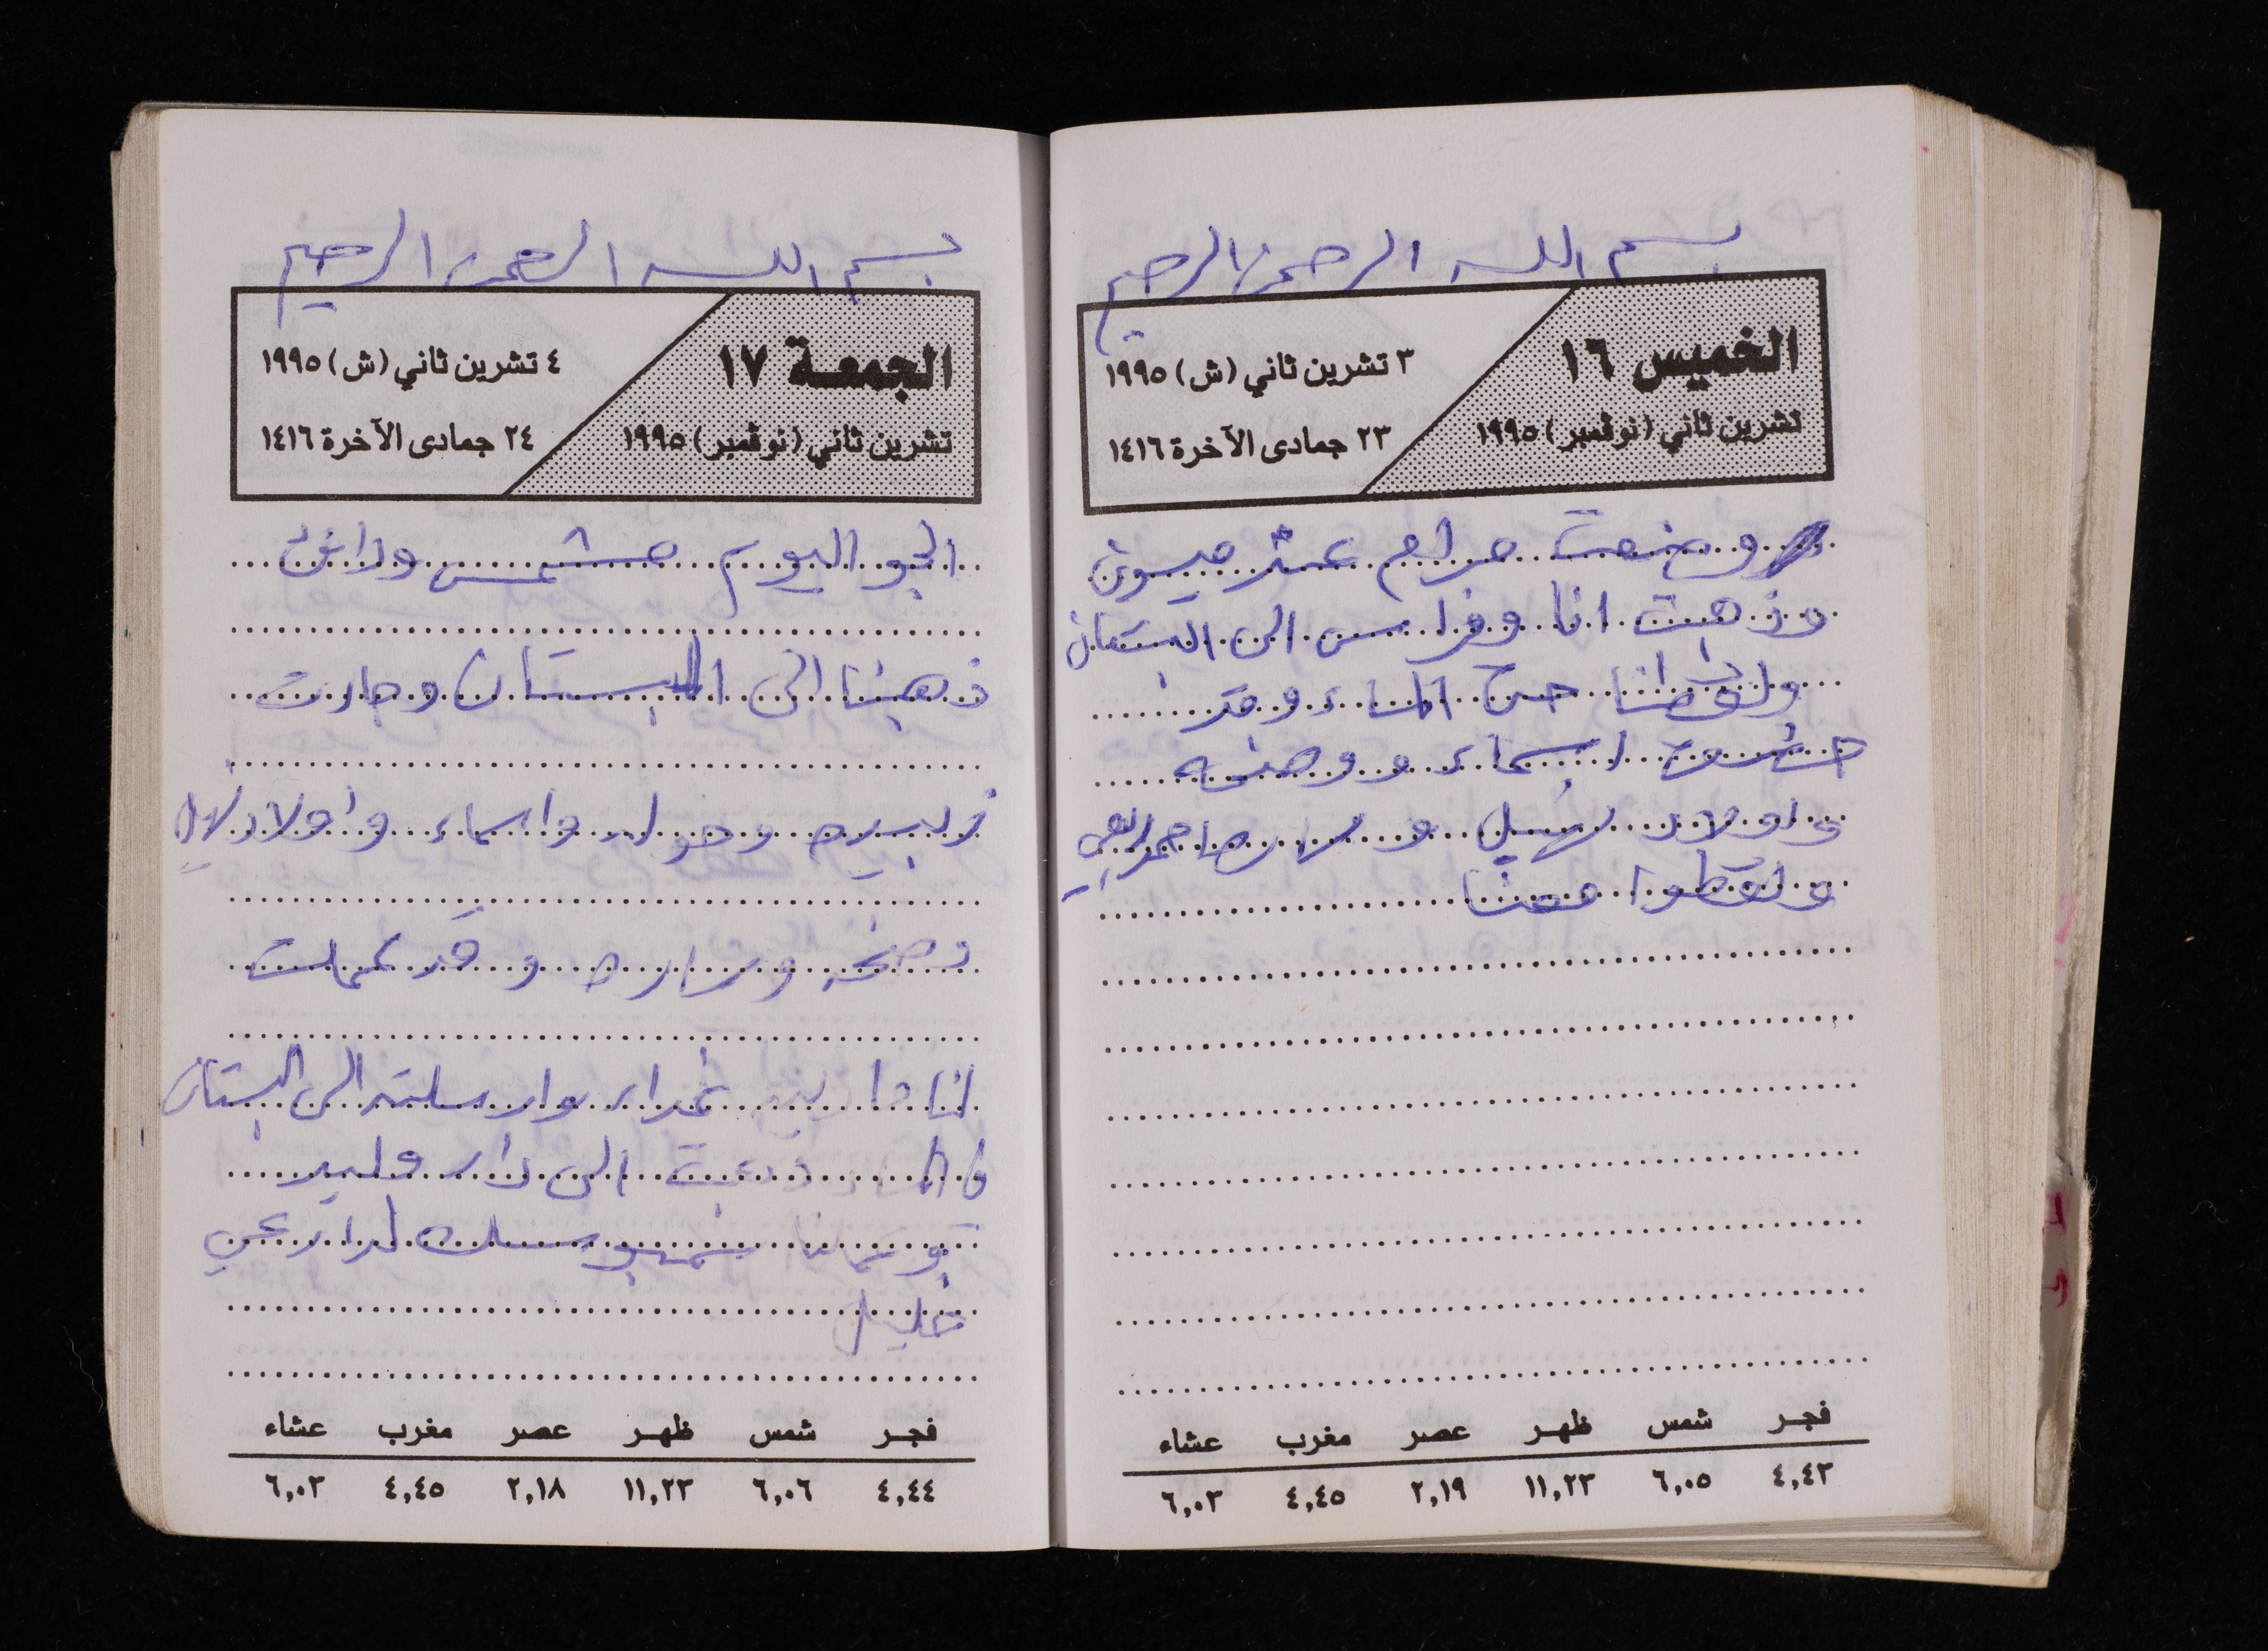 بسم الله الرحمن الرحيم
الخميس ١٦
تشرين ثاني (نوڤمبر) ١٩٩٥
٣ تشرين ثاني (ش) ١٩٩٥
٢٣ جمادى الآخرة ١٤١٦
وضعت مرام عند ميسون
وذهبت انا وفراس الى البستان
ولقطنا حتى المساء وقد
اسماء و
واولاد نهيل و
ولقطوا معنا
فجر شمس ظهر عصر مغرب عشاء
٤,٤٣ ٦,٠٥ ١١,٢٣ ٢,١٩ ٤,٤٥ ٦,٠٣
بسم الله الرحمن الرحيم
الجمعة ١٧
تشرين ثاني (نوڤمبر) ١٩٩٥
٤ تشرين ثاني (ش) ١٩٩٥
٢٤ جمادى الآخرة ١٤١٦
الجو اليوم مشمس ودافئ
ذهبنا الى البستان وجاءت
وخوله واسماء واولاد نهيل
وساره وقد عملت
انا غداء وارسلته الى البستان
الى دار وليد
لدار عمي
خليل
فجر شمس ظهر عصر مغرب عشاء
٤,٤٤ ٦,٠٦ ١١,٢٣ ٢,١٨ ٤,٤٥ ٦,٠٣